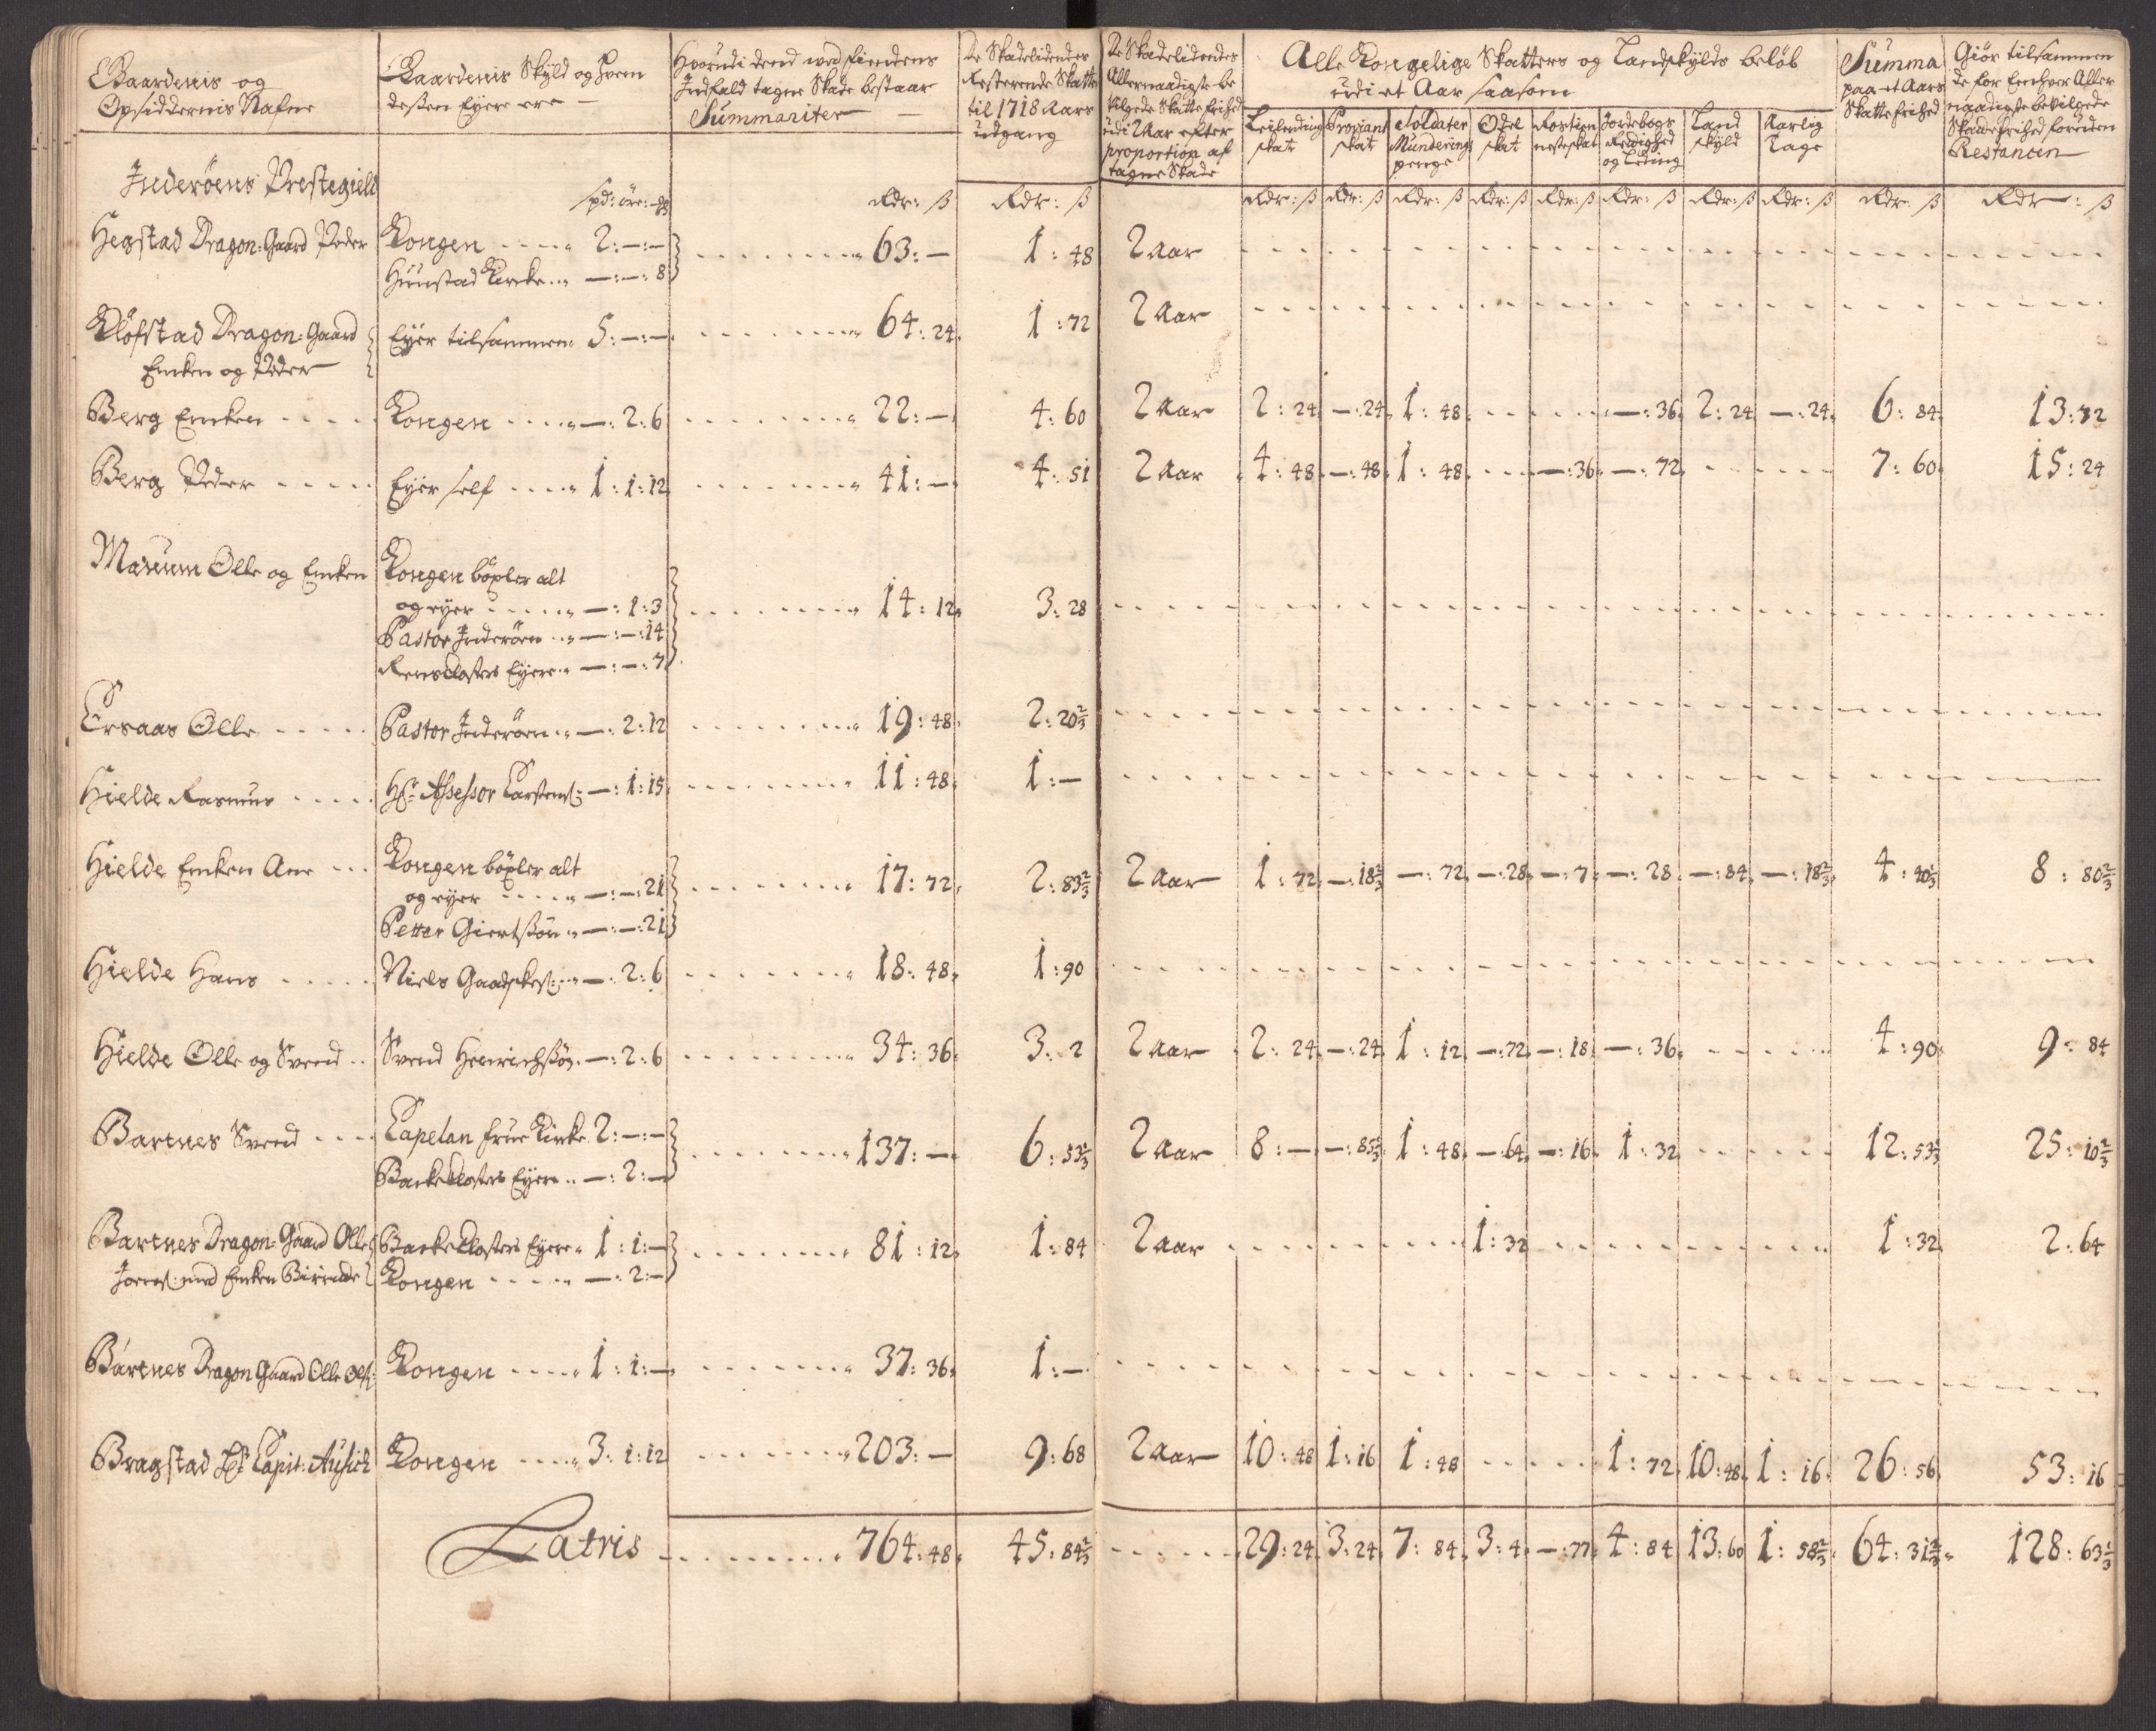 Gaardenis og
Opsiddernis Nafne
Gaardenis Skyld og hvem
desßen Eyere ere —
Hvorudi dend ved fiendens
Indfald tagne Skade bestaar
Summariter —
De Skadelidendes
Resterende Skatter
til 1718 Aars
udgang
De Skadelidendes
Allernaadigste be
vilgede Skatte frihed
udi Aar efter
proportion af
tagne Skade
Alle Kongelige Skatters og Landskylds beløb
udi et Aar saasom
Leilendings skat
Proviant skat
Soldater Munderings penge
Odel skat
Rostien neste skat
Jordebogs Rettighed og Leding
Land skyld
Aarlig Tage
Summa
paa et Aars
Skatte frihed
Giør tilsammen
de for Enhver Aller
naadigste bevilgede
Skatte frihed foruden
Restancen
Inderøens Prestegield
spd: øre: mk
Rdr: ß Rdr: ß Rdr: ß Rdr: ß Rdr: ß Rdr: ß Rdr: ß Rdr: ß Rdr: ß Rdr: ß Rdr: ß Rdr: ß
Hegstad Dragon-Gaard Peder Kongen 2:—:— 63:— 1:48 2 Aar
Hunstad Kirke —:—:8
Kløfstad Dragon-Gaard Eyer tilsammen 5:—:— 64:24 1:72 2 Aar
Enken og Peder
Berg Enken Kongen —:2:6 22:— 4:60 2 Aar 2:24 —:24 1:48 —:36 2:24 —:24 6:84 13:72
Berg Peder Eyer self 1:1:12 41:— 4:51 2 Aar 4:48 —:48 1:48 —:36 —:72 7:60 15:24
Marum Olle og Enken Kongen böxler alt
og eyer —:1:3 14:12 3:28
Pastor Inderøen —:—:14
Rens Closters Eyere —:—:7
Ersaas Olle Pastor Inderøen —:2:12 19:48 2:20 2/3
Hielde Rasmus Hr Assessor Carstens: —:1:15 11:48 1:—
Hielde Enken Ane Kongen böxler alt
og eyer —:—:21 17:72 2:83 2/3 2 Aar 1:72 —:18 2/3 —:72 —:28 —:7 —:28 —:84 —:18 2/3 4:40 1/3 8:80 2/3
Petter Giertsßøn —:—:21
Hielde Hans Niels —:2:6 18:48 1:90
Hielde Olle og Svend Svend Henrichsßøn —:2:6 34:36 3:2 2 Aar 2:24 —:24 1:12 —:72 —:18 —:36 4:90 9:84
Bartnes Svend Capelan frue Kirke 2:—:— 137:— 6:53 1/3 2 Aar 8:— —:85 1/3 1:48 —:64 —:16 1:32 12:53 1/3 25:10 2/3
Bakke Closters Eyere —:2:—
Bartnes Dragon-Gaard Olle Bakke Closters Eyere 1:1:— 81:12 1:84 2 Aar 1:32 1:32 2:64
med Enken Kongen —:2:—
Bartnes Dragon Gaard Olle Ols: Kongen 1:1:— 37:36 1:—
Bragstad Hr Capit: Ausich Kongen 3:1:12 203:— 9:68 2 Aar 10:48 1:16 1:48 1:72 10:48 1:16 26:56 53:16
Latris 764:48 45:84 2/3 29:24 3:24 7:84 3:4 —:77 4:84 13:60 1:58 2/3 64:31 2/3 128:63 1/3